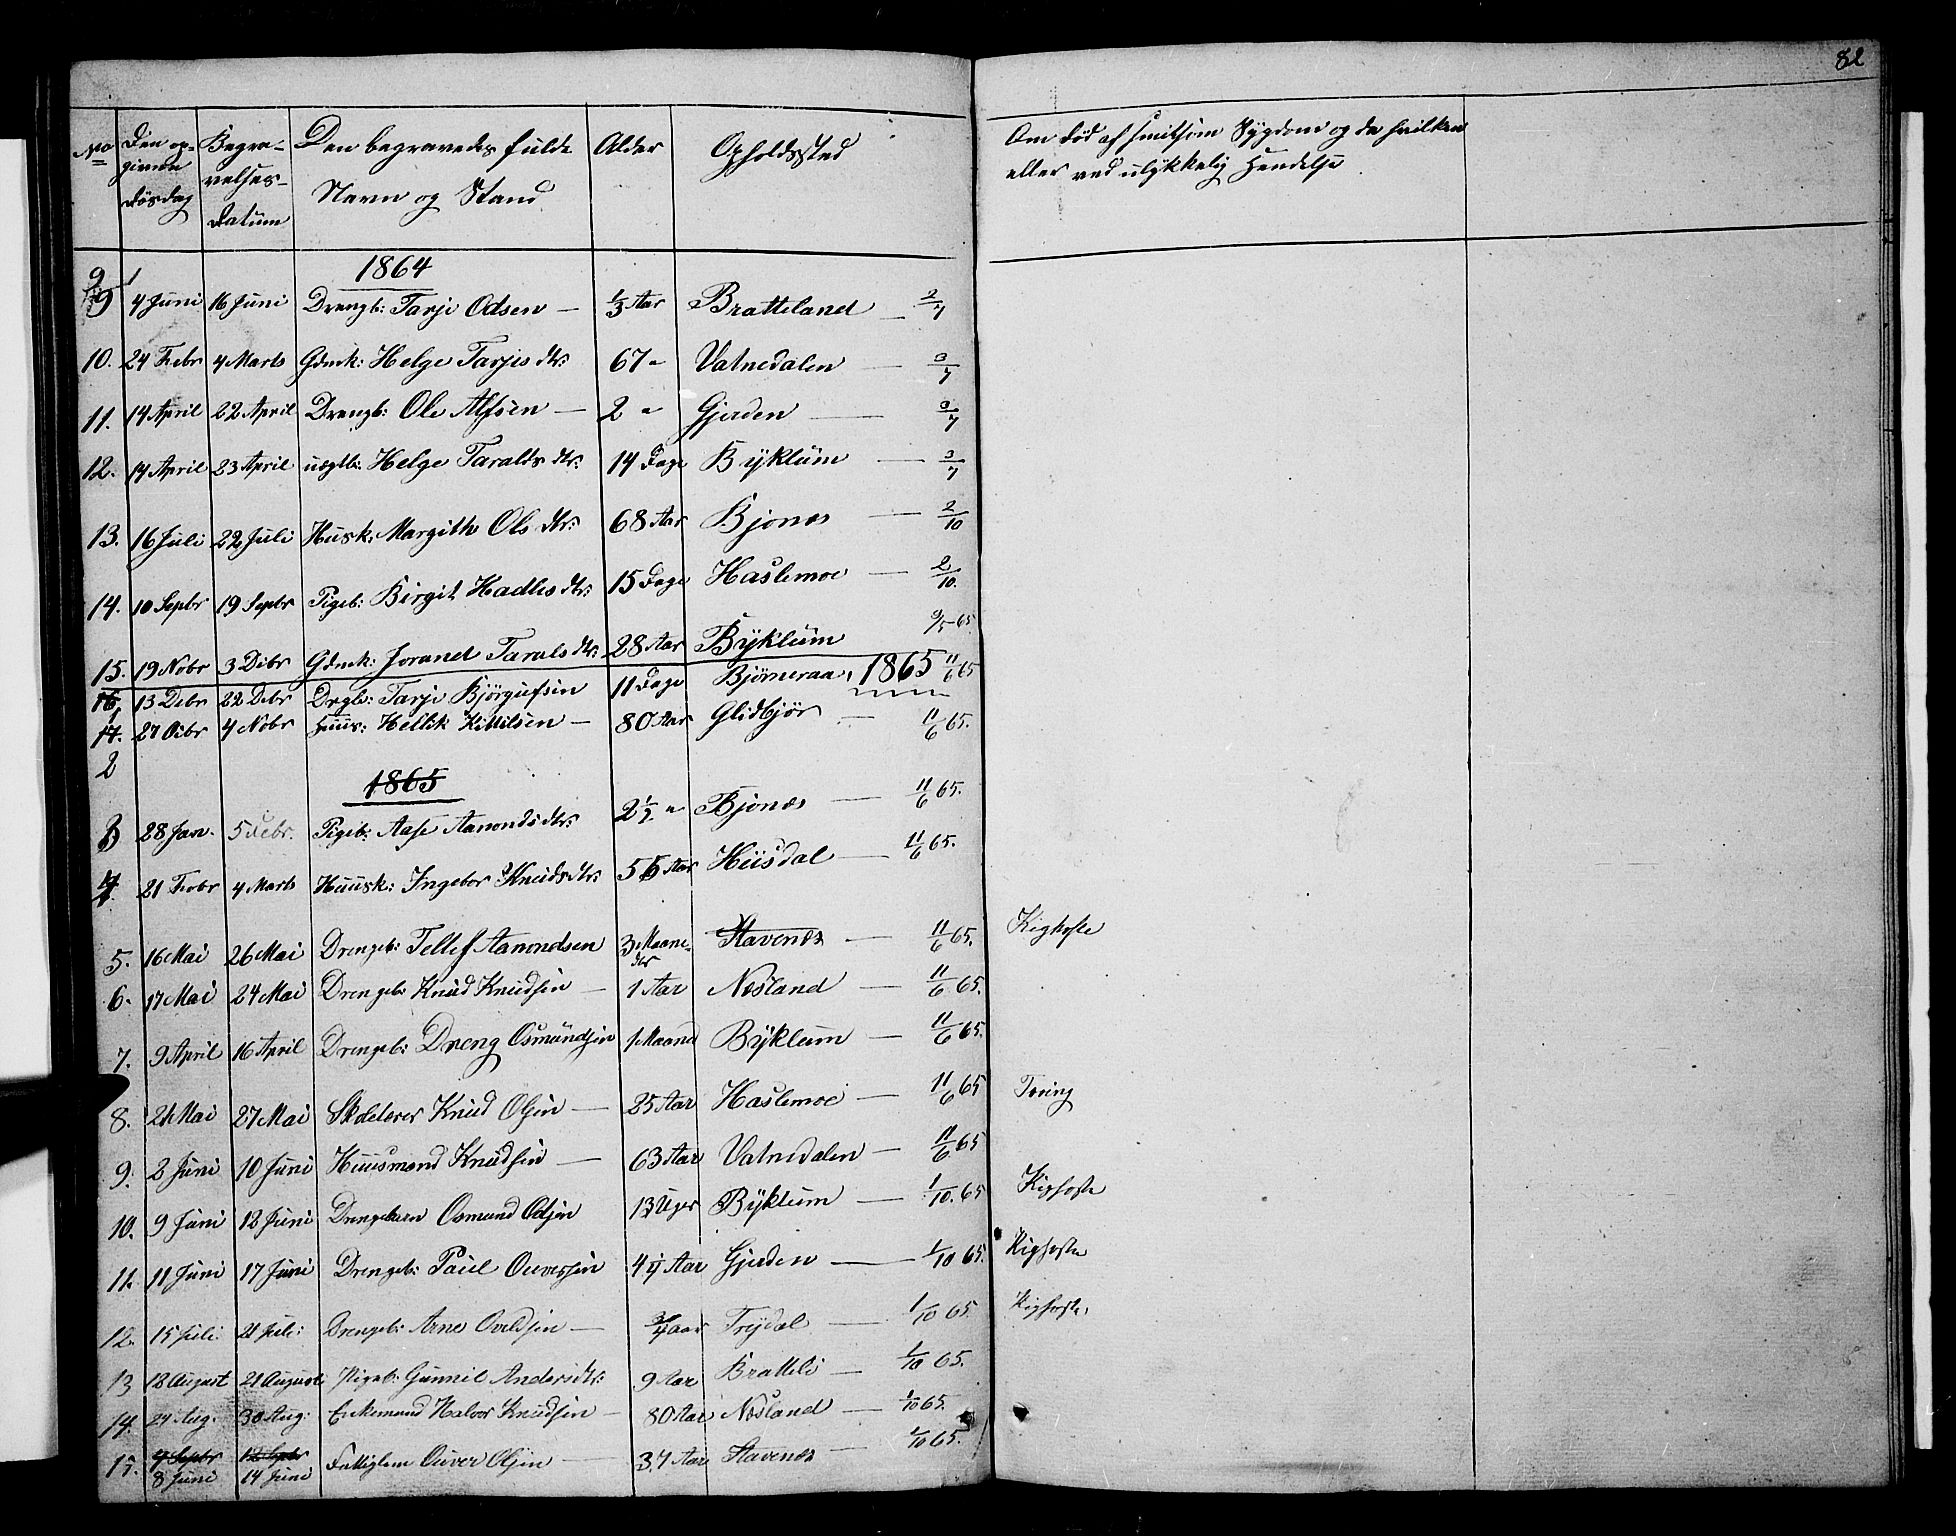 82
No Den opgivne Dødsdag Begravelses-Datum Den begravedes fulde Navn og Stand Alder Opholdssted Om død af smitsom Sygdom og da hvilken eller ved ulykkelig Hendelse
1864
9 4 Juni 16 Juni Drengb: Tarje Odsen — 1/3 Aar Bratteland — 2/7
10. 24 Febr 4 Marts Gdmk: Helge Tarjis dtr: 67 " Vatnedalen — 3/7
11. 14 April 22 April Drengb: Ole Alfsen — 2 " Gjerden — 3/7
12. 14 April 23 April uægtb: Helge Taralds dtr: 14 Dage Byklum — 3/7
13. 16 Juli 22 Juli Husk: Margith Ols dtr: 68 Aar Bjones — 2/10
14. 10 Sepbr 19 Sepbr Pigeb: Birgit Hadles dtr: 15 Dage Haslemoe — 2/10.
15. 19 Nobr 3 Dcbr Gdmk: Jorand Tarals dtr: 28 Aar Byklum 9/5 65
1865
16, 1 13 Debr 22 Debr Drgb: Tarje Björgufsen 11 Dage Bjørneraa, 11/6 65
17. 27 Octbr 4 Nobr Huus: Hellik Kittilsen — 80 Aar Glidbjör — 11/6 65.
2
1865
3 28 Jan. 5 Febr. Pigeb: Aase Aanonds dtr: 2 1/2 " Bjones — 11/6 65.
4 21 Febr 4 Marts Huusk: Ingebor Knuds dtr: 55 Aar Husdal — 11/6 65.
5. 16 Mai 26 Mai Drengeb: Tellef Aanondsen 3 Maaneder Stavenes — 11/6 65. Kighoste
6. 17 Mai 24 Mai Drengeb: Knud Knudsen — 1 Aar Nesland — 11/6 65.
7. 9 April 16 April Drengeb: Dreng Osmundsen 1 Maaned Byklum — 11/6 65.
8. 21 Mai 27 Mai Skolelærer Knud Olsen — 25 Aar Haslemoe — 11/6 65 Tæring
9. 2 Juni 10 Juni Huusmand Knudsen — 63 Aar Vatnedalen — 11/6 65
10. 9 Juni 12 Juni Drengebarn Osmund Odsen 13 Uger Byklum — 1/10. 65 Kighoste
11. 11 Juni 17 Juni Drengeb: Paul Ouversen 4 Aar Gjerden — 1/10 65. Kighoste
12. 15 Juli: 21 Juli: Drengeb: Arne — 3/4 aar Trydal — 1/10 65. Kighoste,
13 12 August 21 August Pigeb: Gunnil Anders dtr: 9 Aar Bratteli — 1/10 65.
14. 24 Aug. 30 Aug: Enkemand Halvor Knudsen — 80 Aar Nesland — 1/10 65.
15. 7 Septbr 12 Sptbr Fattiglem Ouver Olsen — 37 Aar Stavenes — 1/10 65.
8 Juni 14 Juni